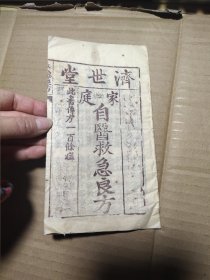 濟世堂
家庭
自醫救急良方
此書傳方一百餘症